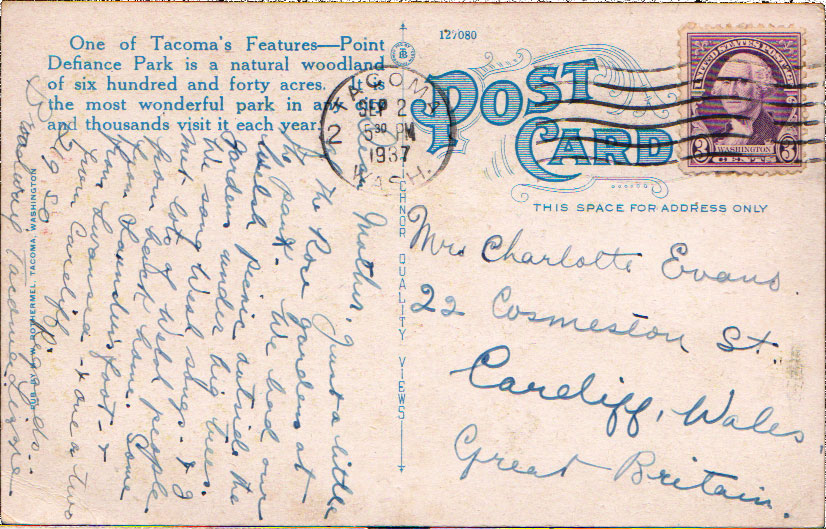 One of Tacoma's Features—Point
Defiance Park is a natural woodland
of six hundred and forty acres. It is
the most wonderful park in any
and thousands visit it each year.
127080
POST
CARD
THIS SPACE FOR ADDRESS ONLY
TACOMA
SEP 2
5 30 PM
1937
WASH.
2
UNITED STATES POSTAGE
3 WASHINGTON 3
CHNOR QUALITY VIEWS
PUB. BY W. W. ROTHERMEL, TACOMA, WASHINGTON
Mrs Charlotte Evans
22 Cosmeston St.
Cardiff, Wales
Great Britain.
Dear Mother, Just a little
of the Rose gardens at
the park. We had our
Welsh Picnic outside the
Gardens under big trees.
We sang Welsh songs - & I
met lots of Welsh people
from back home. Some
from Saundersfoot - &
from Swansea - & one or two
from Cardiff. Regards..
Lizzie
Broadway Tacoma